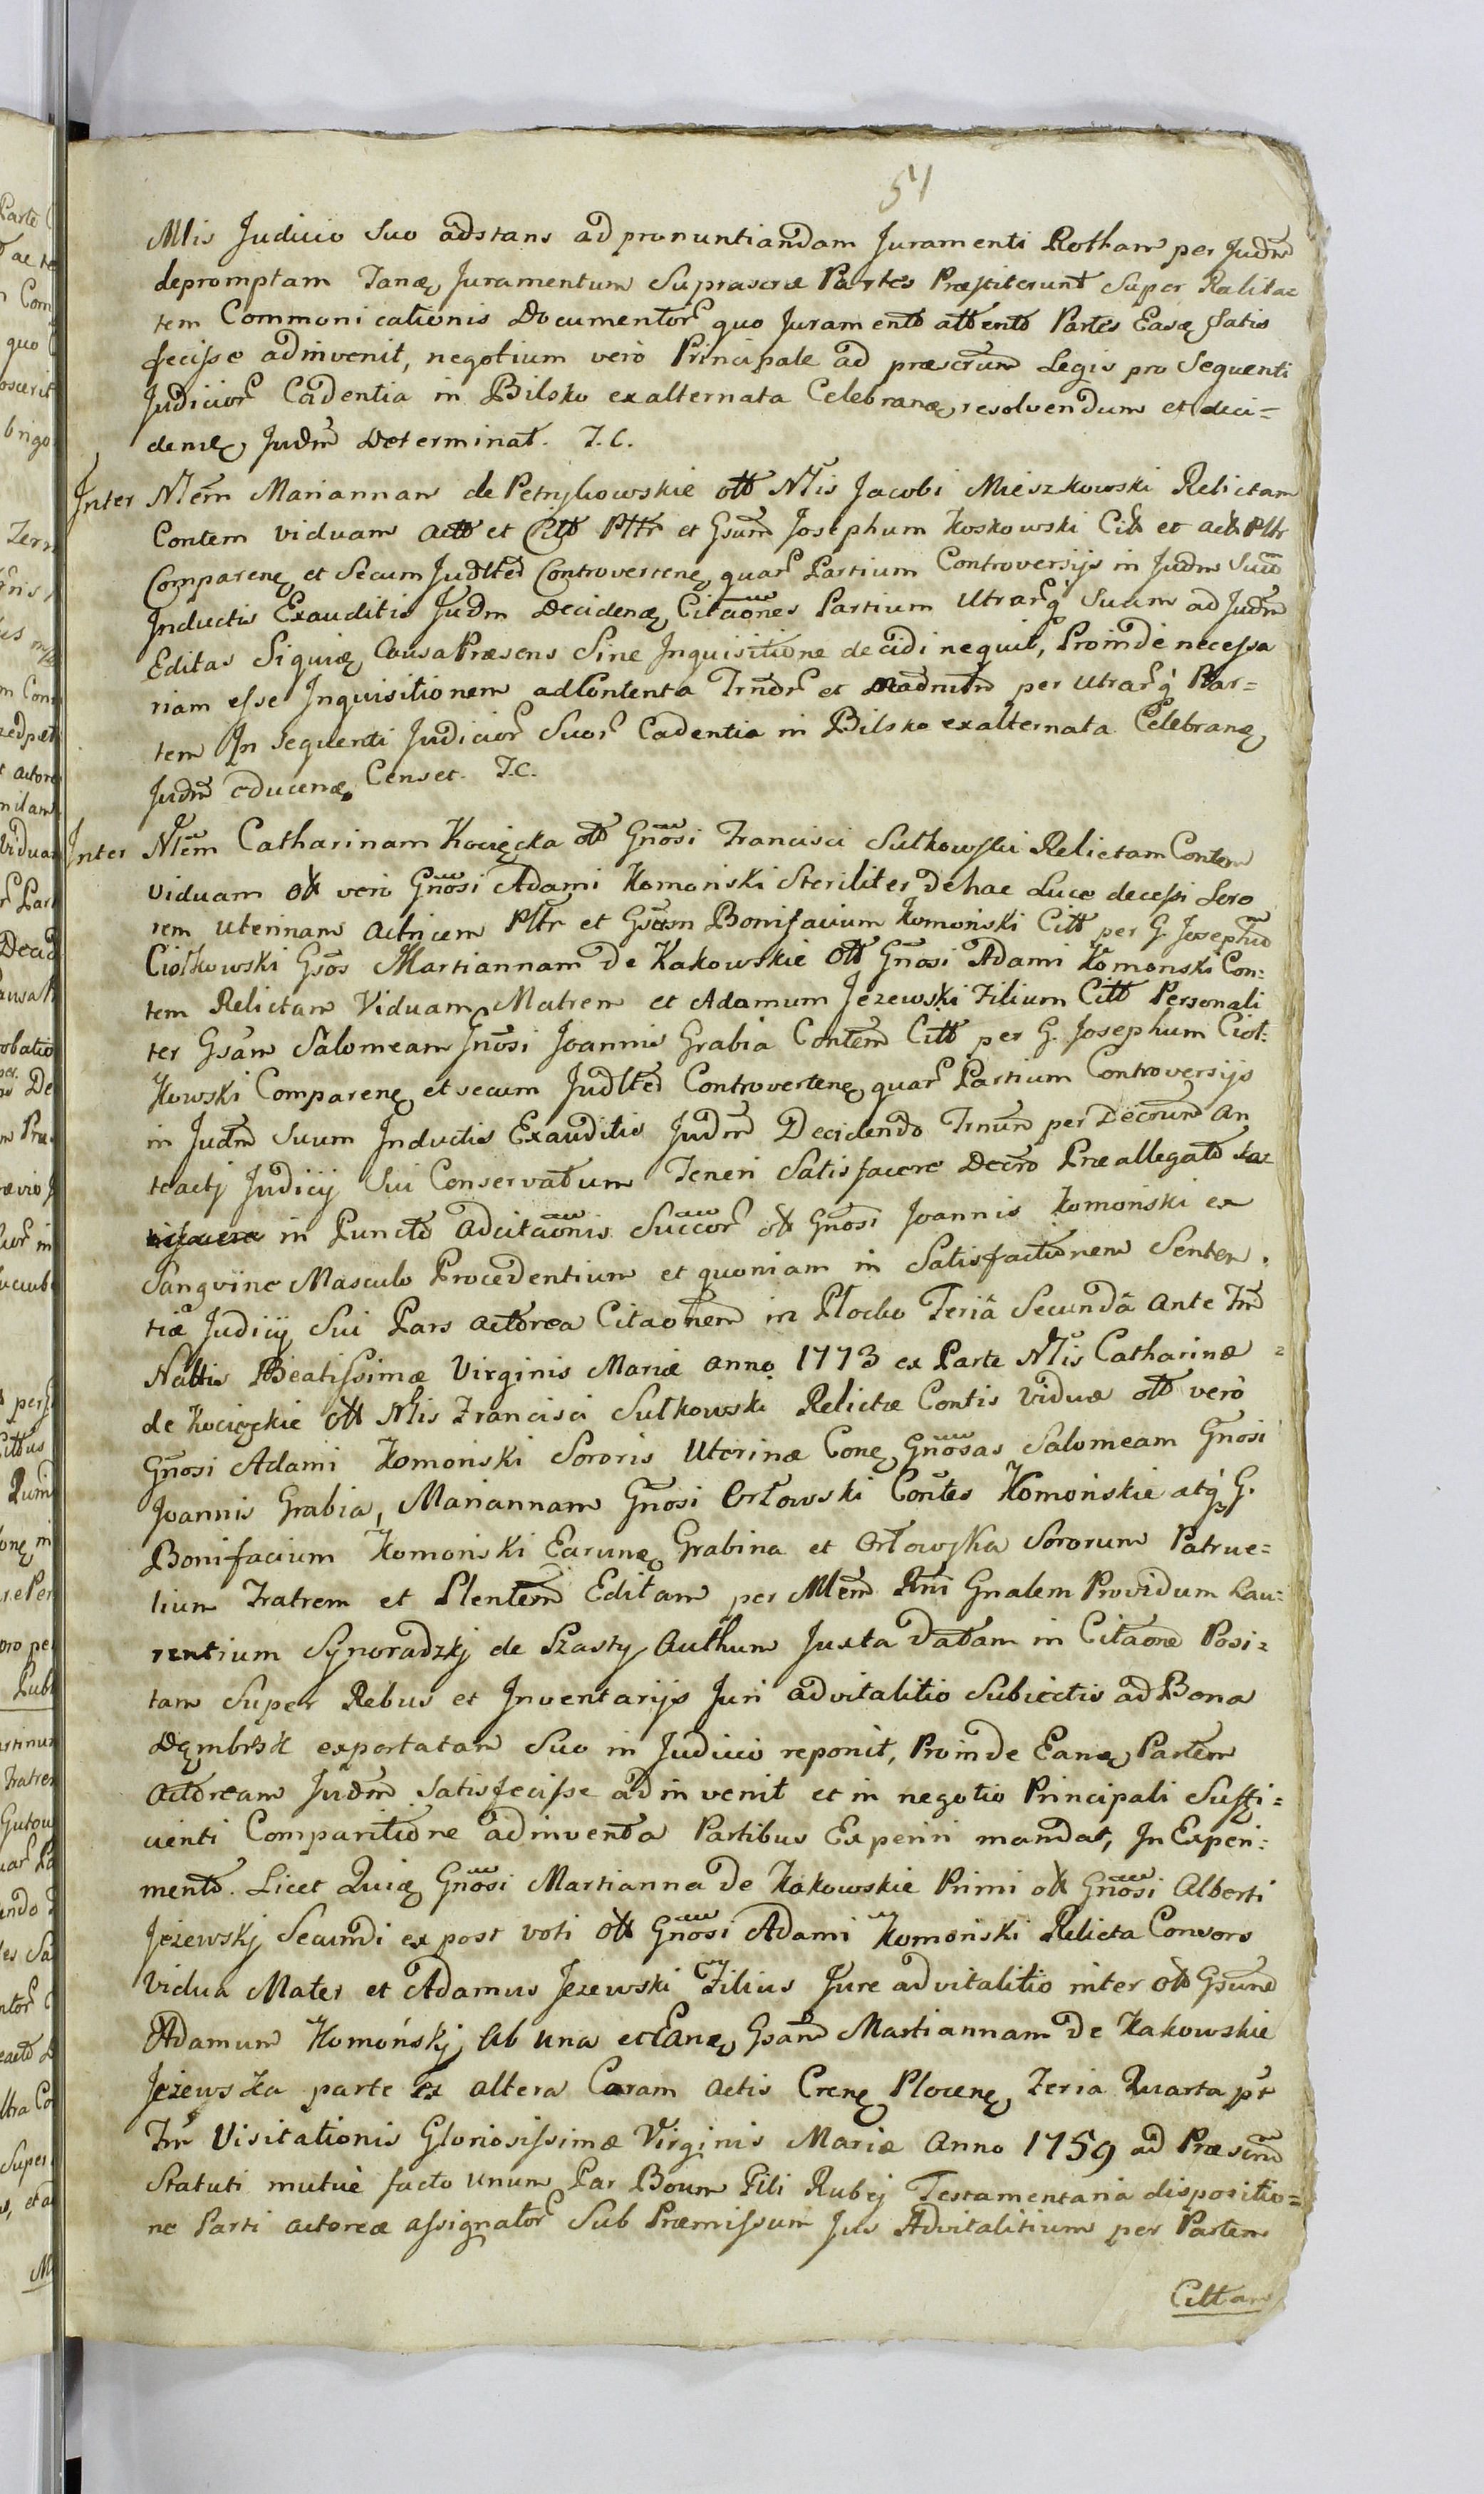 51
Mlis Judicio Suo adstans ad pronuntiandam Juramenti Rotham per Judm
depromptam Tanq Juramentum Suprascrae Partes Praestiterunt Super Realita=
tem Commonicationis Documentor quo Juramento attento Partes Easq Satis
fecisse adinvenit, negotium vero Principale ad praescrum Legis pro Sequenti
Judicior Cadentia in Bilsko exalternata Celebranq resolvendum et deci=
denq Judm Determinat. T. C.
Inter Mem Mariannam de Petrykowskie ott Mlis Jacobi Mieszkowski Relictam
Contem viduam Actt et Citt Pltr et Gsum Josephum Koskowski Citt et actt Pltr
Comparenq et Secum Judlted Controvertenq quar Partium Controversijs in Judm Suum
Inductis Exauditis Judm Decidenq Citaones Partium Utrarq Suum ad Judm
Editas Siquiq Causa Praesens Sine Inquisitione decidi nequit, Proinde necessa
riam esse Inquisitionem ad Contenta Trndr et per Utrarq Par=
tem In Sequenti Judicior Suor Cadentia in Bilsko exalternata Celebranq
Judm educenq Censet. T. C.
Inter Mem Catharinam Kocięcka ott Gnosi Francisci Sulkowski Relictam Contem
viduam ott vero Gnosi Adami Komoński Steriliter de hac Luce decessi Soro
rem uterinam Actricem Pltr et Gsum Bonifacium Komoński Citt per G. Josephum
Ciołkowski Gsos Martiannam de Kakowskie ott Gnosi Adami Komonski Con=
tem Relictam Viduam Matrem et Adamum Jezewski Filium Citt Personali
ter Gsam Salomeam Gnosi Joannis Grabia Contem Citt per G. Josephum Cioł=
kowski Comparenq et secum Judlted Controvertenq quar Partium Controversijs
in Judm Suum Inductis Exauditis Judm Decidendo Trnum per Decrum An
teactj Judicij Sui Conservatum Teneri Satisfacere Decro Praeallegato
in Puncto Adcitaonis Succor ott Gnosi Joannis Komoński ex
Sangvine Masculo Procedentium et quoniam in Satisfactionem Senten=
tiae Judicij Sui Pars actorea Citaonem in Plocko Feria Secunda Ante Fm
Nattis Beatissimae Virginis Mariae anno 1773 ex Parte Mlis Catharinae
de Kocięckie ott Mlis Francisci Sulkowski Relictae Contis Viduae ott vero
Gnosi Adami Komoński Sororis Uterinae Conq Gnosas Salomeam Gnosi
Joannis Grabia, Mariannam Gnosi Orłowski Contes Komońskie atq G.
Bonifacium Komoński Earunq Grabina et Orłowska Sororum Patrue=
lium Fratrem et Plentem Editam per Mlem Rni Gnalem Providum Lau=
rentium Synoradzkj de Szasty Authum Juxta Datam in Citaone Posi=
tam Super Rebus et Inventarijs Juri advitalitio Subiectis ad Bona
exportatam Suo in Judicio reponit, Proinde Eanq Partem
Actoream Judm Satisfecisse adinvenit et in negotio Principali Suffi=
cienti Comparitione adinventa Partibus Experiri mandat, In Experi=
mento. Licet Quiq Gnosi Martianna de Kakowskie Primi ott Gnosi Alberti
Jeżewskj Secundi ex post voti ott Gnosi Adami Komoński Relicta Consors
Vidua Mater et Adamus Jezewski Filius Jure advitalitio inter ott Gsum
Adamum Komońskj Ab una et Eanq Gsam Martiannam de Kakowskie
Jeżewska parte ex altera Coram Actis Crenq Plocenq Feria Quarta pt
Fm Visitationis Gloriosissimae Virginis Mariae Anno 1759 ad Praescrum
Statuti mutue facto unum Par Boum Pili Rubej Testamentaria dispositio=
ne Parti actoreae assignator Sub Praemissum Jus Advitalitium per Partem
Cittam